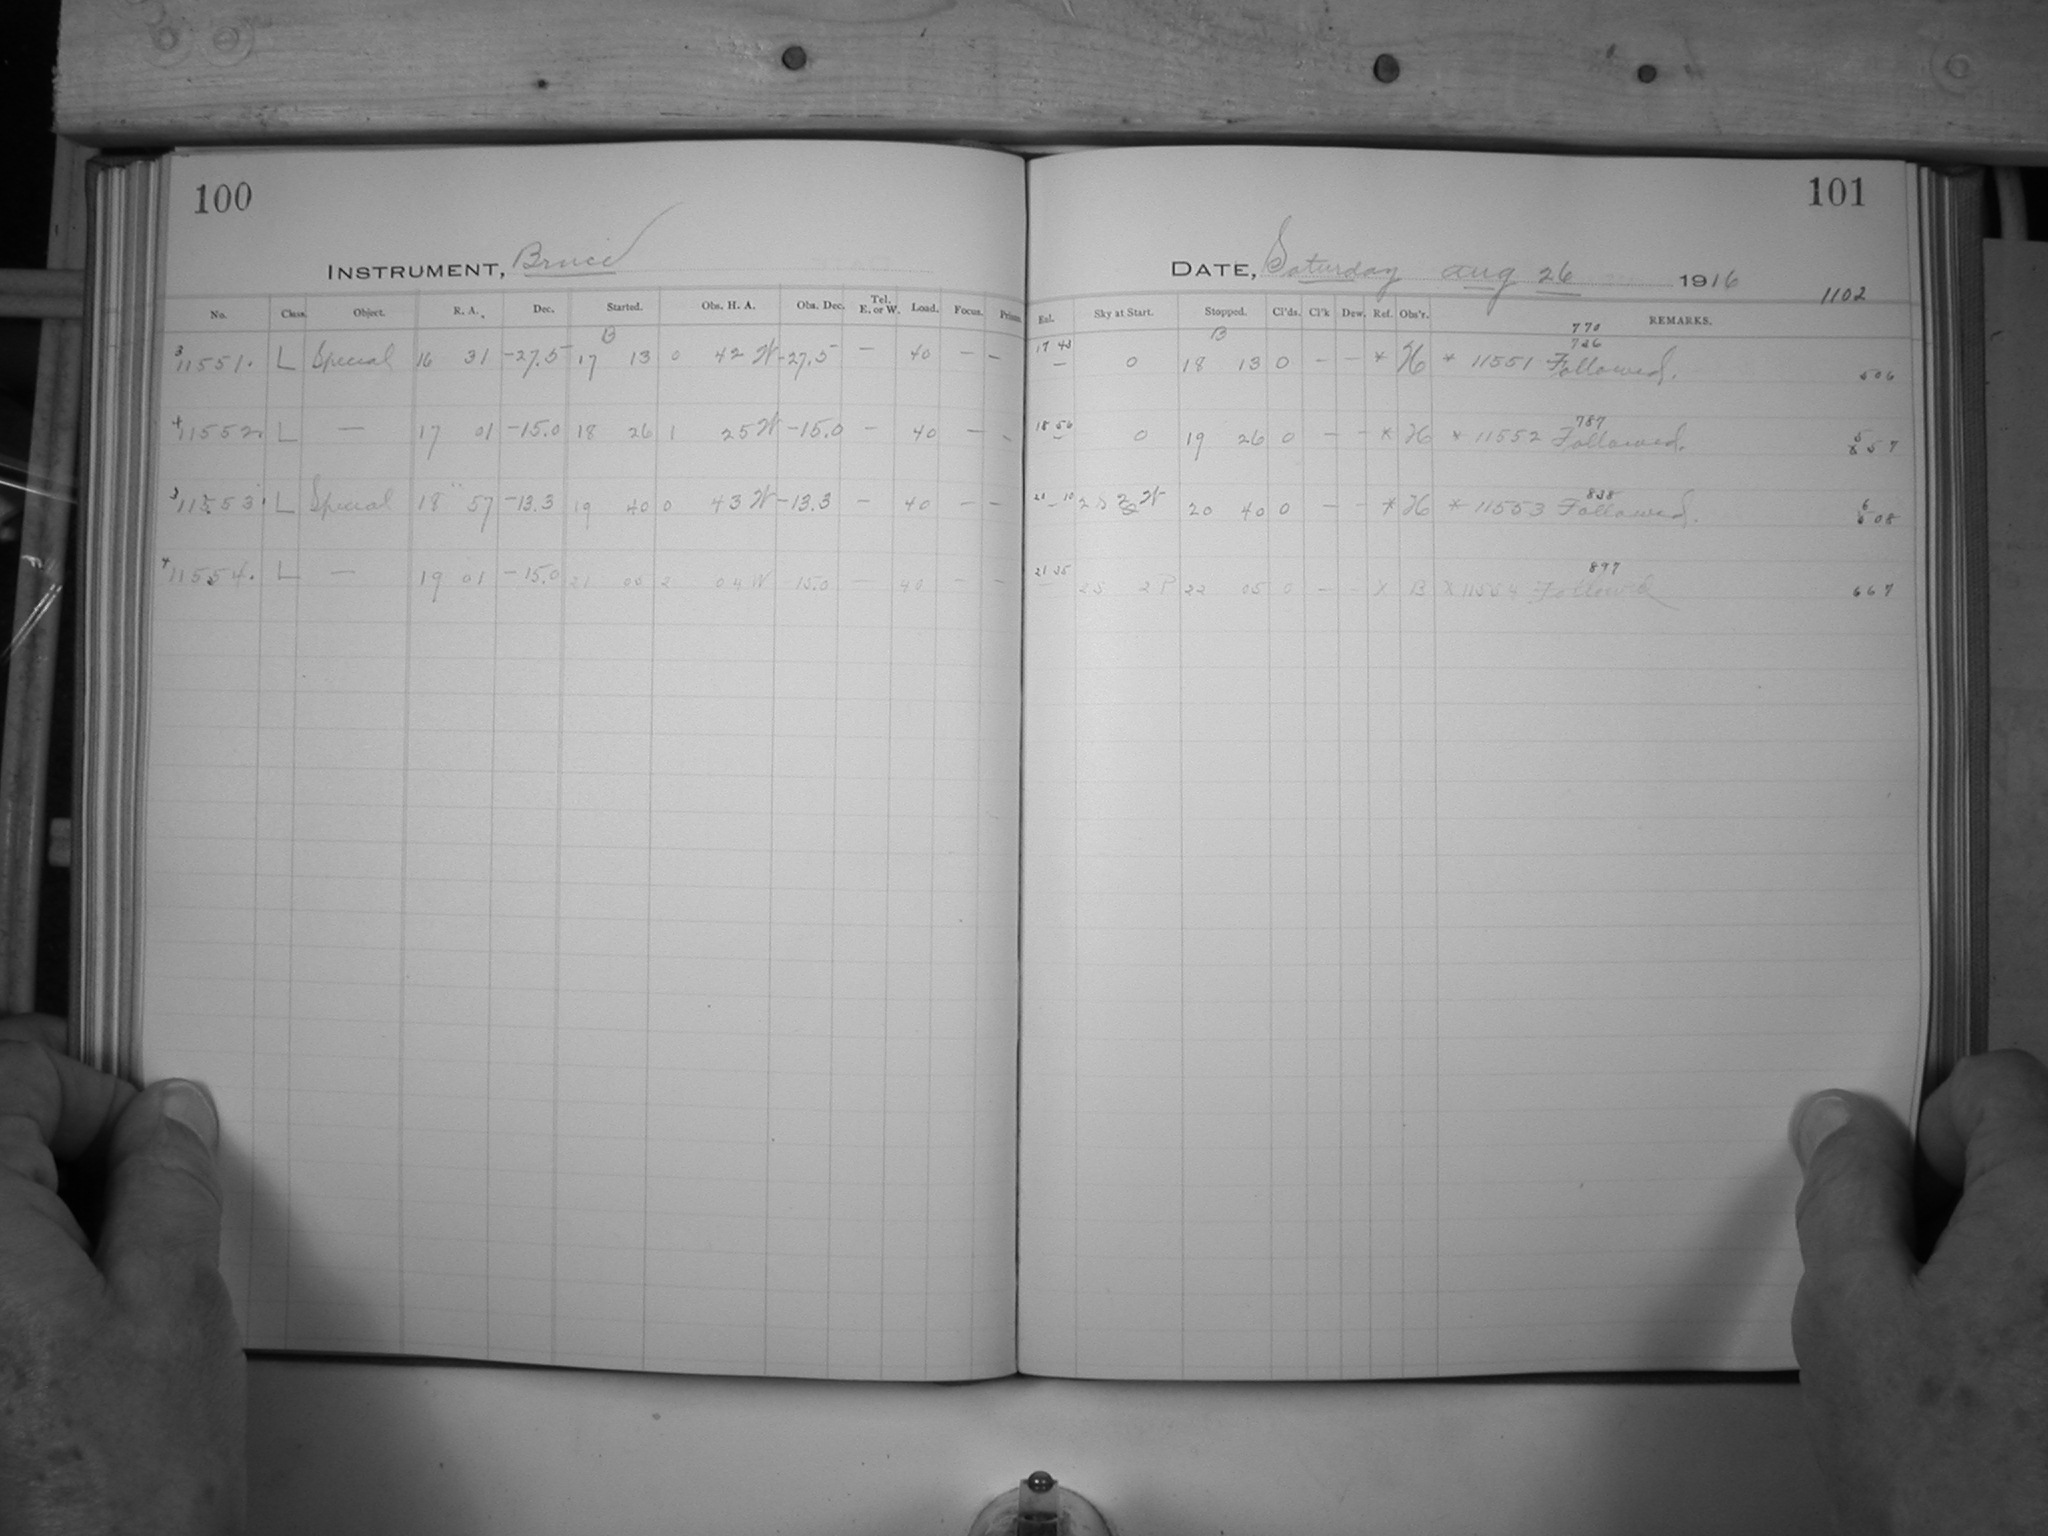 100
INSTRUMENT, Bruce
No. Class. Object. R. A. Dec. Started. Obs. H. A. Obs. Dec. Tel. E. or W. Load. Focus. Prism.
B
3 11551. L Special 16 31 -27.5 17 13 0 42 W -27.5 — 40 — —
4 11552. L — 17 01 -15.0 18 26 1 25 W -15.0 — 40 — -
3 11553. L Special 18 57 -13.3 19 40 0 43 W -13.3 — 40 — —
4 11554. L — 19 01 -15.0 21 05 2 04 W -15.0 — 40 — -
101
DATE, Saturday Aug 26 1916
1102
Ext. Sky at Start. Stopped. Cl'ds. Cl'k Dew. Ref. Obs'r. REMARKS.
B 770
17 43 726
— 0 18 13 0 — — * H * 11551 Followed. 506
18 56 787
— 0 19 26 0 — - * H * 11552 Followed. 557
20 10 838
— 2 S W 20 40 0 — - * H * 11553 Followed. 608
21 35 897
— 2 S 2 P 22 05 0 — - X B X 11554 Followed 667